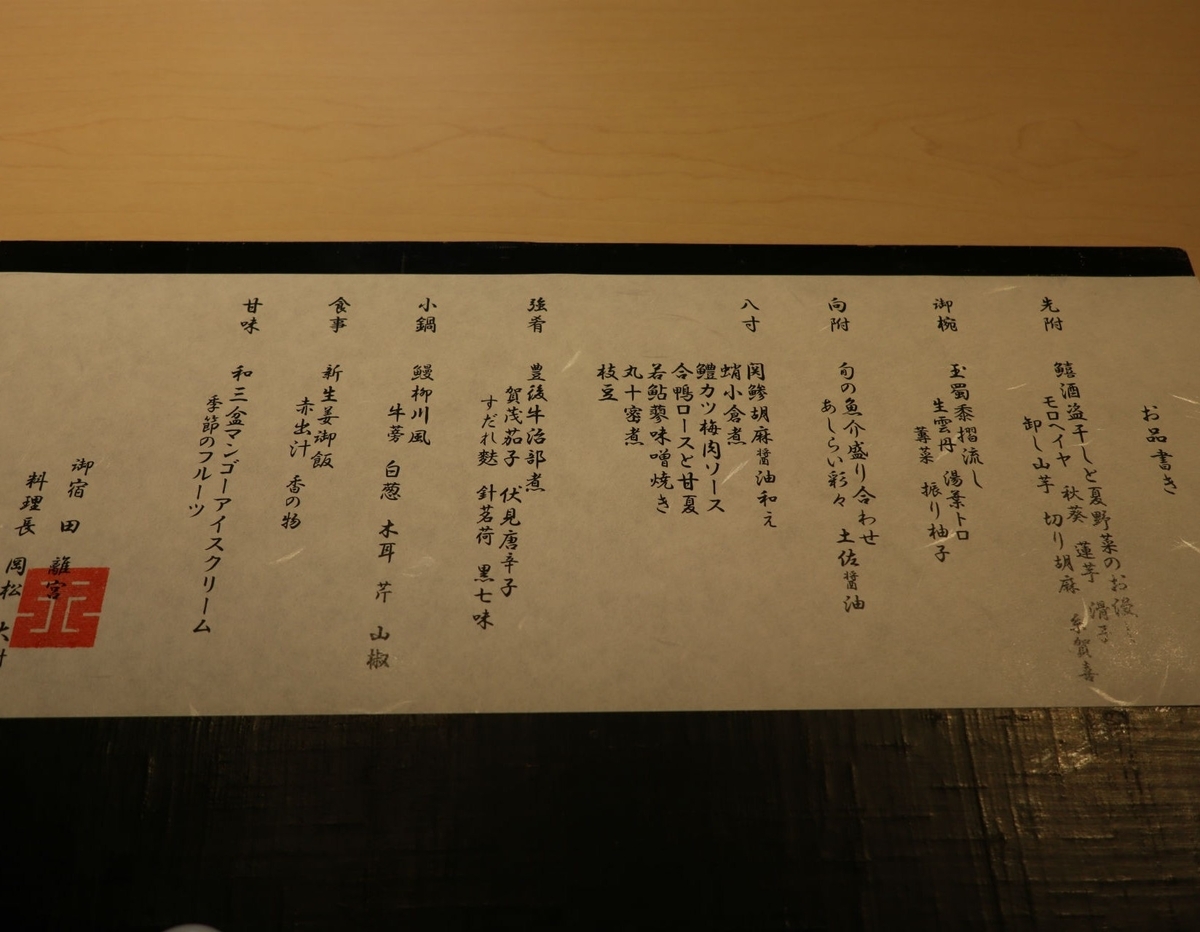 お品書き
先附
鱚酒盗干しと夏野菜のお浸
モロヘイヤ 秋葵 蓮芋 滑子
卸し山芋 切り胡麻 糸賀喜
御椀
玉蜀黍摺流し
生雲丹 湯葉トロ
蓴菜 振り柚子
向附
旬の魚介盛り合わせ
あしらい彩々 土佐醤油
八寸
関鯵胡麻醤油和え
蛸小倉煮
鱧カツ梅肉ソース
合鴨ロースと甘夏
若鮎蓼味噌焼き
丸十密煮
枝豆
強肴
豊後牛治部煮
賀茂茄子 伏見唐辛子
すだれ麩 針茗荷 黒七味
小鍋
鰻柳川風
牛蒡 白葱 木耳 芹 山椒
食事
新生姜御飯
赤出汁 香の物
甘味
和三盆マンゴーアイスクリーム
季節のフルーツ
御宿 田 離宮
料理長 岡松